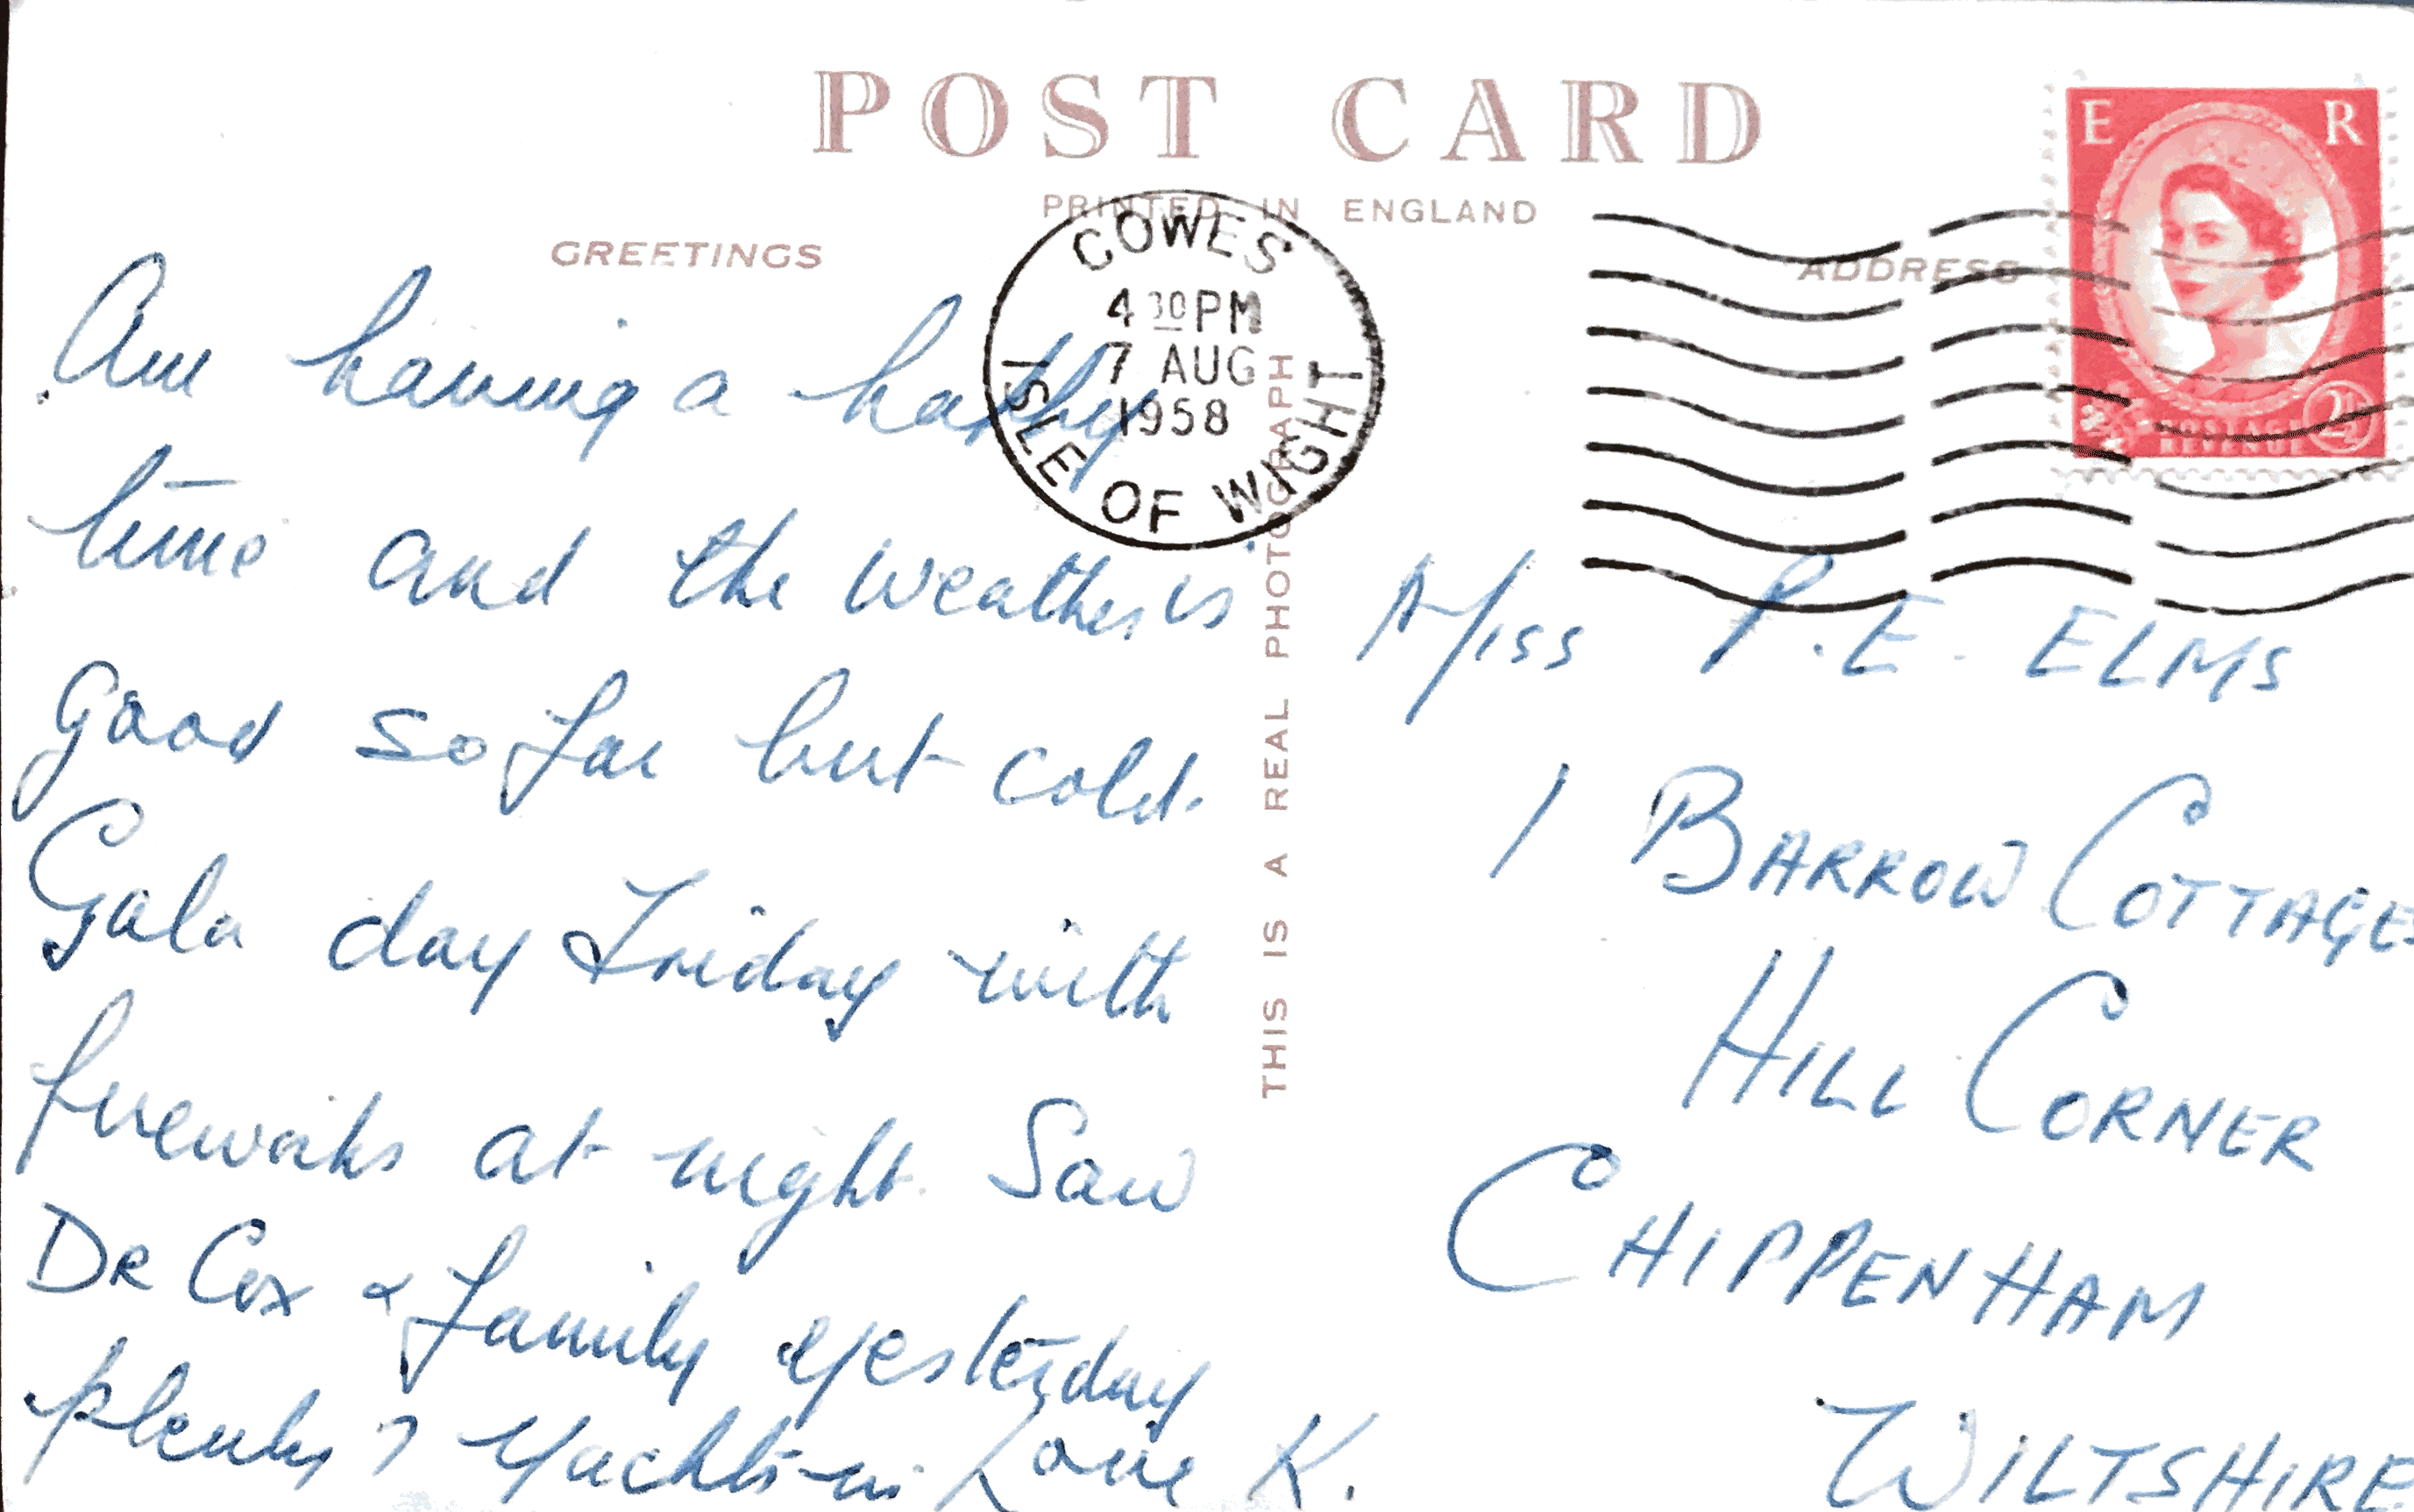 POST CARD
PRINTED IN ENGLAND
GREETINGS
ADDRESS
COWES
4 30 PM
7 AUG
1958
ISLE OF WIGHT
E R
POSTAGE
REVENUE
2½
THIS IS A REAL PHOTOGRAPH
Am having a happy
time and the weather is
good so far but cold.
Gala day Friday with
fireworks at night. Saw
DR Cox & family yesterday
plenty of yachts in. Love K.
Miss P.E. ELMS
1 BARROW COTTAGES
HILL CORNER
CHIPPENHAM
WILTSHIRE